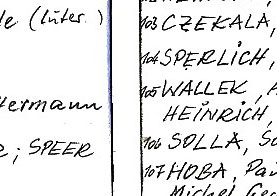 (luter.)
ermann
; SPEER
103 CZEKALA,
104 SPERLICH,
105 WALLEK,
HEINRICH,
106 SOLLA, So
107 HOBA, Pau
Michel Geo